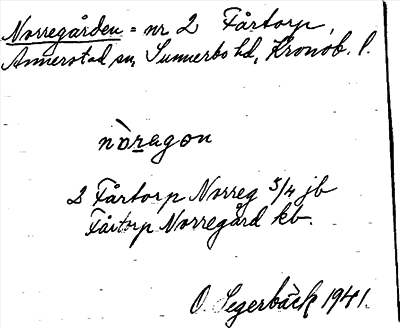 Norregården = nr 2 Fårtorp,
Annerstad sn, Sunnerbo hd, Kronob. l.
nòregon
2 Fårtorp Norreg 3/4 jb
Fårtorp Norregård kb.
O. Segerbäck 1941.